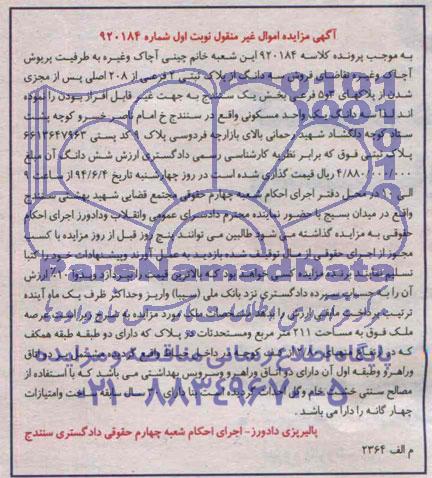 آگهی مزایده اموال غیر منقول نوبت اول شماره ۹۲۰۱۸۴
به موجب پرونده کلاسه ۹۲۰۱۸۴ این شعبه خانم چینی آچاک وغیره به طرفیت پریوش
آچاک وغیره تقاضای فروش سه دانگ از پلاک ثبتی ۲ فرعی از ۲۰۸ اصلی پس از مجزی
شدن از پلاکهای ۳و۵ فرعی بخش یک سنندج به جهت غیر قابل افراز بودن را نموده
اند لذا سه دانگ یک واحد مسکونی واقع در سنندج خ امام ناصر خسرو کوچه پشت
ستاد کوچه دلگشاد شهید رحمانی بالای بازارچه فردوسی پلاک ۹ کد پستی ۶۶۱۳۶۴۷۹۶۳
پلاک ثبتی فوق که برابر نظریه کارشناسی رسمی دادگستری ارزش شش دانگ آن مبلغ
۴/۸۸۰/۰۰۰/۰۰۰ ریال قیمت گذاری شده است در روز چهارشنبه تاریخ ۹۴/۶/۴ از ساعت ۹
الی ۱۰ در محل دفتر اجرای احکام شعبه چهارم حقوقی مجتمع قضایی شهید بهشتی سنندج
واقع در میدان بسیج با حضور نماینده محترم دادسرای عمومی وانقلاب ودادورز اجرای احکام
حقوقی به مزایده گذاشته می شود طالبین می توانند پنج روز قبل از روز مزایده با کسب
مجوز از اجرای حقوقی از مال توقیف شده بازدید به عمل آورند وپیشنهادات خود را کتبا
تسلیم نمایند برنده مزایده کسی خواهد بود که بالاترین قیمت ۱۰٪ ارزش
آن را به حساب سپرده دادگستری نزد بانک ملی (سیبا) واریز وحداکثر ظرف یک ماه آینده
ترتیب پرداخت مابقی ارزش را بدهد مشخصات ملک مورد مزایده به شرح زیر است عرصه
ملک فوق به مساحت ۲۱۱ متر مربع ومستحدثات در پلاک که دارای دو طبقه طبقه همکف
که در ارتفاع از کف کوچه در داخل حیاط واقع گردیده مشتمل بر دو اتاق
وراهرو وطبقه اول آن دارای دو اتاق وراهرو وسرویس بهداشتی می باشد که با استفاده از
مصالح سنتی خشت خام وگل احداث گردیده است بنا دارای سال سابقه ساخت وامتیازات
چهار گانه را دارا می باشد .
پالیریزی دادورز- اجرای احکام شعبه چهارم حقوقی دادگستری سنندج
م الف ۲۳۶۴
پایگاه اطلاع رسانی مناقصه و مزایده
۰۲۱-۸۸۳۴۹۶۷۰-۵